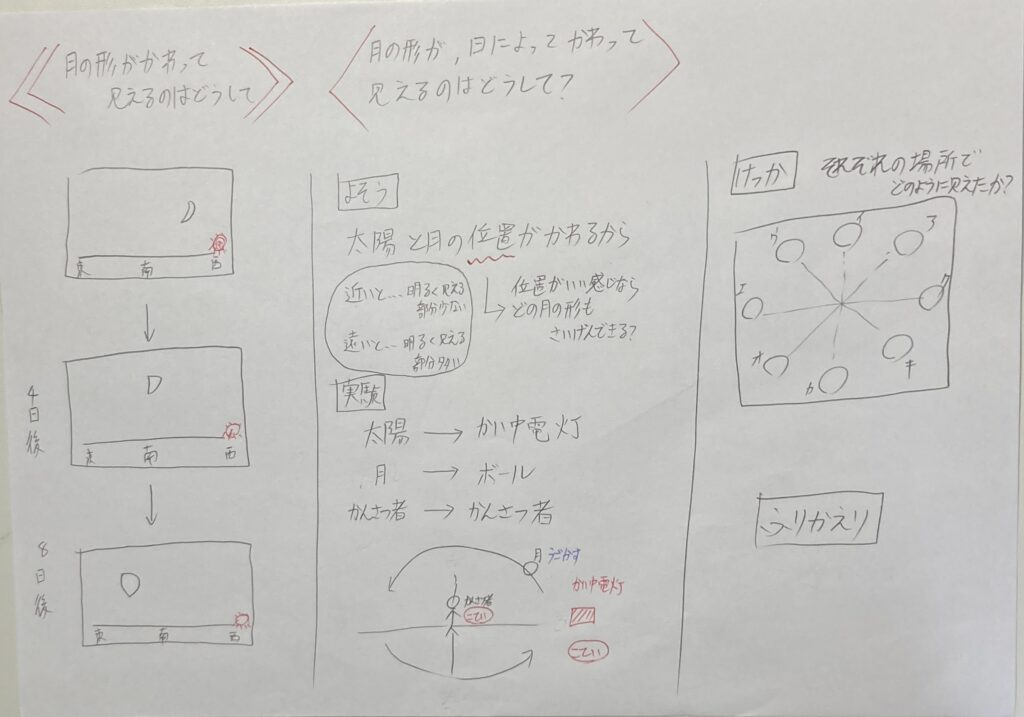 月の形がかわって
見えるのはどうして
月の形が,日によってかわって
見えるのはどうして?
東 南 西
4日後
東 南 西
8日後
東 南 西
よそう
太陽と月の位置がかわるから
近いと…明るく見える
部分少ない
遠いと…明るく見える
部分多い
位置がいい感じなら
どの月の形も
さいげんできる?
実験
太陽 → かい中電灯
月 → ボール
かんさつ者 → かんさつ者
月 うごかす
かんさつ者
こてい
かい中電灯
こてい
けっか
それぞれの場所で
どのように見えたか?
ア
イ
ウ
エ
オ
カ
キ
ク
ふりかえり